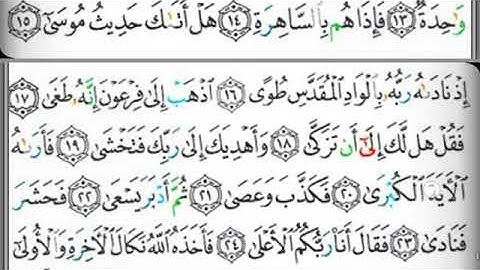 وَٰحِدَةٌ ۝١٣ فَإِذَا هُم بِٱلسَّاهِرَةِ ۝١٤ هَلْ أَتَىٰكَ حَدِيثُ مُوسَىٰٓ ۝١٥
إِذْ نَادَىٰهُ رَبُّهُۥ بِٱلْوَادِ ٱلْمُقَدَّسِ طُوًى ۝١٦ ٱذْهَبْ إِلَىٰ فِرْعَوْنَ إِنَّهُۥ طَغَىٰ ۝١٧
فَقُلْ هَل لَّكَ إِلَىٰٓ أَن تَزَكَّىٰ ۝١٨ وَأَهْدِيَكَ إِلَىٰ رَبِّكَ فَتَخْشَىٰ ۝١٩ فَأَرَىٰهُ
ٱلْـَٔايَةَ ٱلْكُبْرَىٰ ۝٢٠ فَكَذَّبَ وَعَصَىٰ ۝٢١ ثُمَّ أَدْبَرَ يَسْعَىٰ ۝٢٢ فَحَشَرَ
فَنَادَىٰ ۝٢٣ فَقَالَ أَنَا۠ رَبُّكُمُ ٱلْأَعْلَىٰ ۝٢٤ فَأَخَذَهُ ٱللَّهُ نَكَالَ ٱلْـَٔاخِرَةِ وَٱلْأُولَىٰٓ